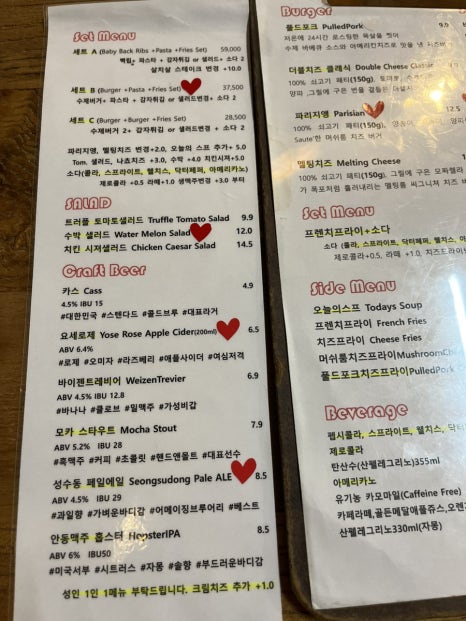 Set Menu
세트 A (Baby Back Ribs +Pasta +Fries Set) 59,000
백립+ 파스타 + 감자튀김 or 샐러드+ 소다 2
살치살 스테이크 변경 +10.0
세트 B (Burger +Pasta +Fries Set) 37,500
수제버거+ 파스타 + 감자튀김 or 샐러드변경 + 소다 2
세트 C (Burger +Burger +Fries Set) 28,500
수제버거 2+ 감자튀김 or 샐러드변경 + 소다 2
파리지앵, 멜팅치즈 변경+2.0, 오늘의 스프 추가+ 5.0
Tom. 샐러드, 나초치즈 +3.0, 수박 +4.0 치킨시져+5.0
소다(콜라, 스프라이트, 웰치스, 닥터페퍼, 아메리카노)
제로콜라 +0.5 라떼+1.0 생맥주변경 +3.0 부터
SALAD
트러플 토마토샐러드 Truffle Tomato Salad 9.9
수박 샐러드 Water Melon Salad 12.0
치킨 시져샐러드 Chicken Caesar Salad 14.5
Craft Beer
카스 Cass 4.9
4.5% IBU 15
#대한민국 #스탠다드 #콜드브루 #대표라거
요세로제 Yose Rose Apple Cider(200ml) 6.5
ABV 6.4%
#로제 #오미자 #라즈베리 #애플사이더 #여심저격
바이젠트레비어 WeizenTrevier 6.9
ABV 4.5% IBU 12.8
#바나나 #클로브 #밀맥주 #가성비갑
모카 스타우트 Mocha Stout 7.9
ABV 5.2% IBU 28
#흑맥주 #커피 #초콜릿 #핸드앤몰트 #대표선수
성수동 페일에일 Seongsudong Pale ALE 8.5
ABV 4.5% IBU 29
#과일향 #가벼운바디감 #어메이징브루어리 #베스트
안동맥주 홉스터 HopsterIPA 8.5
ABV 6% IBU50
#미국서부 #시트러스 #자몽 #솔향 #부드러운바디감
성인 1인 1메뉴 부탁드립니다. 크림치즈 추가 +1.0
Burger
풀드포크 PulledPork 9.0
저온에 24시간 로스팅한 목살을 찢어
수제 바베큐 소스와 아메리칸치즈로 맛을 낸 치즈버
더블치즈 클래식 Double Cheese Classic
100% 쇠고기 패티(150g),
양파 ,그릴에 구운 번을 곁들인 더블
파리지앵 Parisian 12.5
100% 쇠고기 패티(150g),
Saute'한 머쉬룸 치즈 버거
멜팅치즈 Melting Cheese
100% 쇠고기 패티(150g), 그릴에 구운 모짜렐라
가 폭포처럼 흘러내리는 멜팅룸 씨그니쳐 치즈버
Set Menu
프렌치프라이+소다
소다 (콜라, 스프라이트, 닥터페퍼, 웰치스,
제로콜라+0.5, 라떼 +1.0, 치즈프라이
Side Menu
오늘의스프 Todays Soup
프렌치프라이 French Fries
치즈프라이 Cheese Fries
머쉬룸치즈프라이MushroomCh
풀드포크치즈프라이PulledPork
Beverage
펩시콜라, 스프라이트, 웰치스,
제로콜라
탄산수(산펠레그리노)355ml
아메리카노
유기농 카모마일(Caffeine Free)
카페라떼,골든메달애플쥬스,오렌
산펠레그리노330ml(자몽)